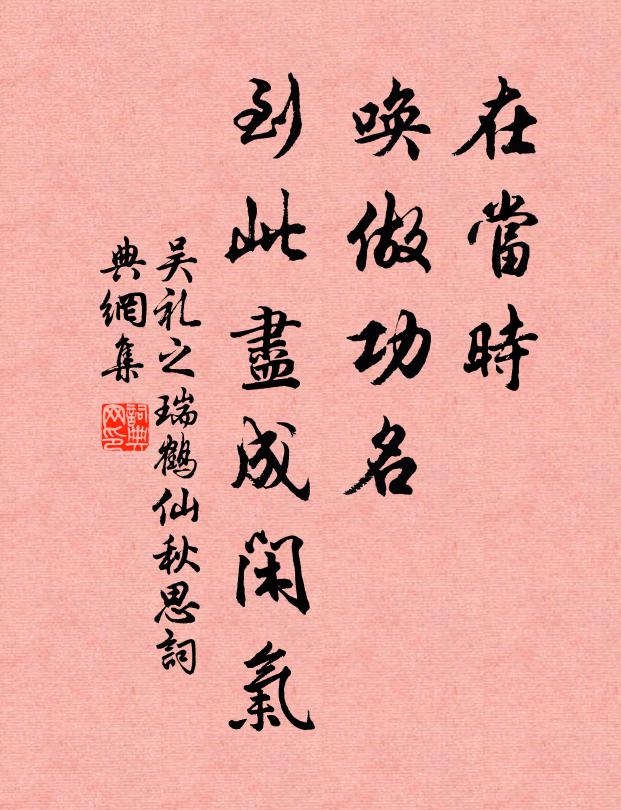 在當時
喚做功名
到此盡成閑氣
吴礼之瑞鶴仙秋思詞
典網集
詞典网印